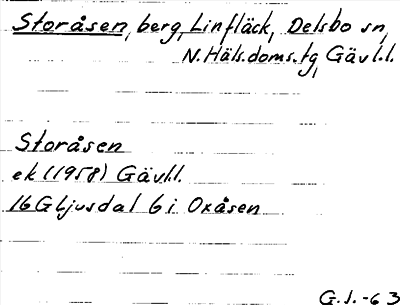 Storåsen, berg, Linfläck, Delsbo sn,
N. Häls. doms. tg, Gävl.l.
Storåsen
ek (1958) Gävl.l.
16G Ljusdal 6 i Oxåsen
G.J.-63